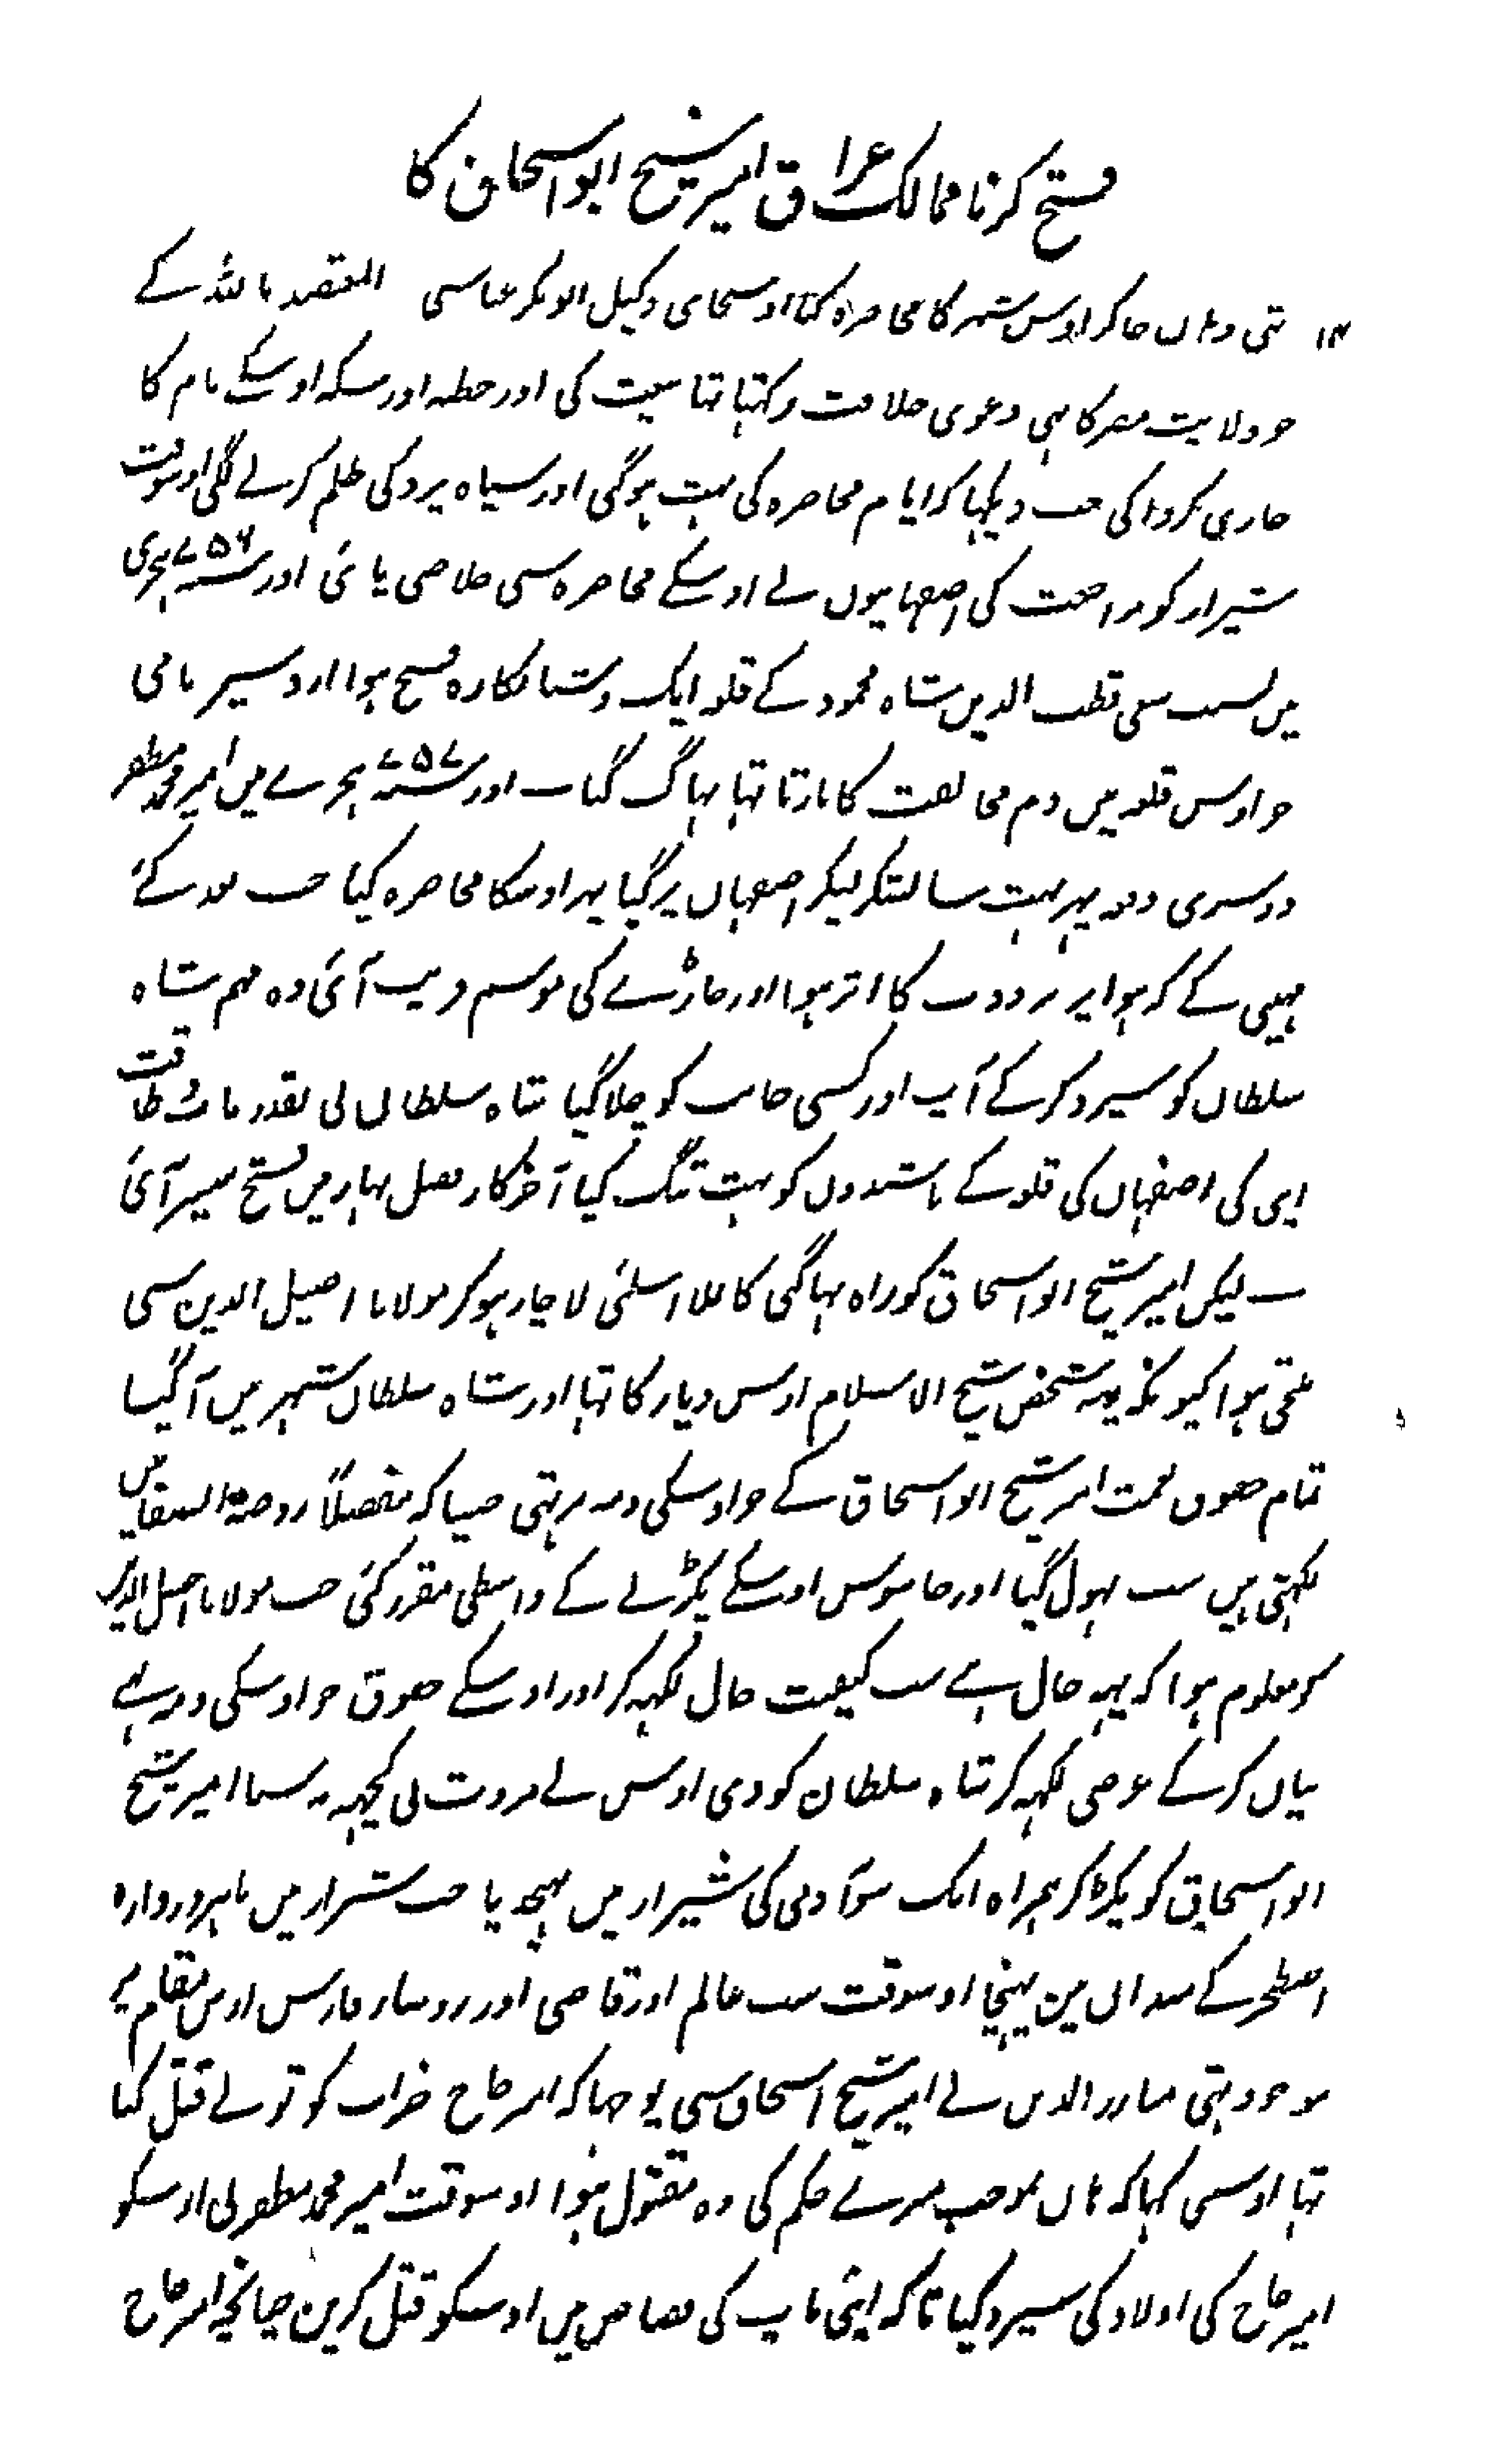 فتح کرنا ممالک عراق امیر شیخ ابو اسحاق کا
۱۴ تہی وہاں جاکر اوس شہر کا محاصرہ کیا اوسجای وکیل ابوبکر عباسی المعتضد باللہ کے
جو ولایت مصر کا ہی دعوی خلافت رکہتا تہا بیعت کی اور خطبہ اور سکہ اوسکے نام کا
جاری کروا کی جب دیکہا کہ ایام محاصرہ کی بہت ہوگی اور سپاہ یزد کی ظلم کرنے لگی اوسوقت
شیراز کو مراجعت کی اصفہانیوں نے اوسکے محاصرہ سی خلاصی پائی اور ۷۵۶ ہجری
میں بسبب سعی قطب الدین شاہ محمود کے قلعہ ایک فتح ہوا اردسیر
جو اوس قلعہ میں دم مخالفت کا مارتا تہا بہاگ گیا ـ اور ۷۵۷ ہجرے میں امیر محمد مظفر
دوسری دفعہ پہر بہت سا لشکر لیکر اصفہان پر گیا پہر اوسکا محاصرہ کیا جب بعد کئے
مہینی کے کہ ہوا پر برودت کا اثر ہوا اور جاڑے کی موسم قریب آئی وہ مہم شاہ
سلطان کو سپرد کرکے آپ اور کسی جانب کو چلا گیا شاہ سلطان نی بقدر طاقت
اپنی کی اصفہان کی قلعہ کے باشندوں کو بہت تنگ کیا آخر کار فصل بہار میں فتح میسر آئی
ـ لیکن امیر شیخ ابو اسحاق کو راہ بہاگنی کا ملا اسلئی لاچار ہوکر مولانا اصیل الدین سی
ملتجی ہوا کیونکہ یہہ شخص شیخ الاسلام اوس دیار کا تہا اور شاہ سلطان شہر میں آگیا
تمام حقوق نعمت امیر شیخ ابو اسحاق کے جو اوسکی ذمہ پر تہی جیسا کہ مفصلاً روضة الصفا میں
لکہتی ہیں سب بہول گیا اور جاسوس اوسکے پکڑنے کے واسطی مقرر کئی جب مولانا اصیل الدین
کو معلوم ہوا کہ یہہ حال ہے سب کیفیت حال لکہہ کر اور اوسکے حقوق جو اوسکی ذمہ ہے
بیان کرکے عرضی لکہہ کر شاہ سلطان کو دی اوس بے مروت نی کچہہ نہ سنا امیر شیخ
ابو اسحاق کو پکڑ کر ہمراہ ایک سو آدمی کی شیراز میں بہیجدیا جب شیراز میں باہر دروازہ
اصطخر کے میدان مین پہنچا اوسوقت سب عالم اور قاضی اور روساء فارس اوس مقام پر
موجود تہی مبارز الدین نے امیر شیخ اسحاق سی پوچہا کہ امیر حاج ضراب کو تو نے قتل کیا
تہا اوسی کہا کہ ہاں بموجب میرے حکم کی وہ مقتول ہوا اوسوقت امیر محمد مظفر نی اوسکو
امیر حاج کی اولاد کی سپرد کیا تاکہ اپنی باپ کی قصاص میں اوسکو قتل کرین چنانچہ امیر حاج